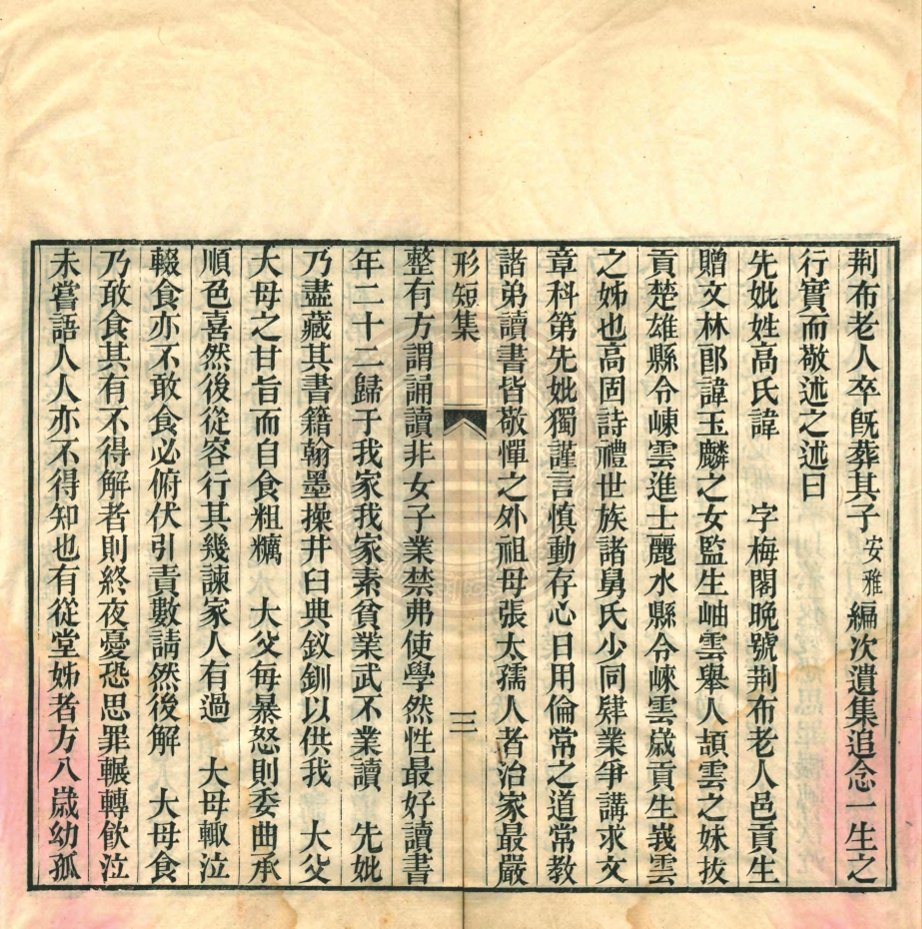 荆布老人卒旣葬其子安雅編次遺集追念一生之
行實而敬述之述曰
先妣姓高氏諱　字梅閣晩號荆布老人邑貢生
贈文林郎諱玉麟之女監生岫雲舉人頡雲之妹拔
貢楚雄縣令崠雲進士麗水縣令崍雲歲貢生峩雲
之姊也高固詩禮世族諸舅氏少同肄業爭講求文
章科第先妣獨謹言慎動存心日用倫常之道常教
諸弟讀書皆敬憚之外祖母張太孺人者治家最嚴
形短集
三
整有方謂誦讀非女子業禁弗使學然性最好讀書
年二十二歸于我家我家素貧業武不業讀　先妣
乃盡藏其書籍翰墨操井臼典釵釧以供我　大父
大母之甘旨而自食粗糲　大父每暴怒則委曲承
順色喜然後從容行其幾諫家人有過　大母輙泣
輟食亦不敢食必俯伏引責數請然後解　大母食
乃敢食其有不得解者則終夜憂恐思罪輾轉飲泣
未嘗語人人亦不得知也有從堂姊者方八歲幼孤